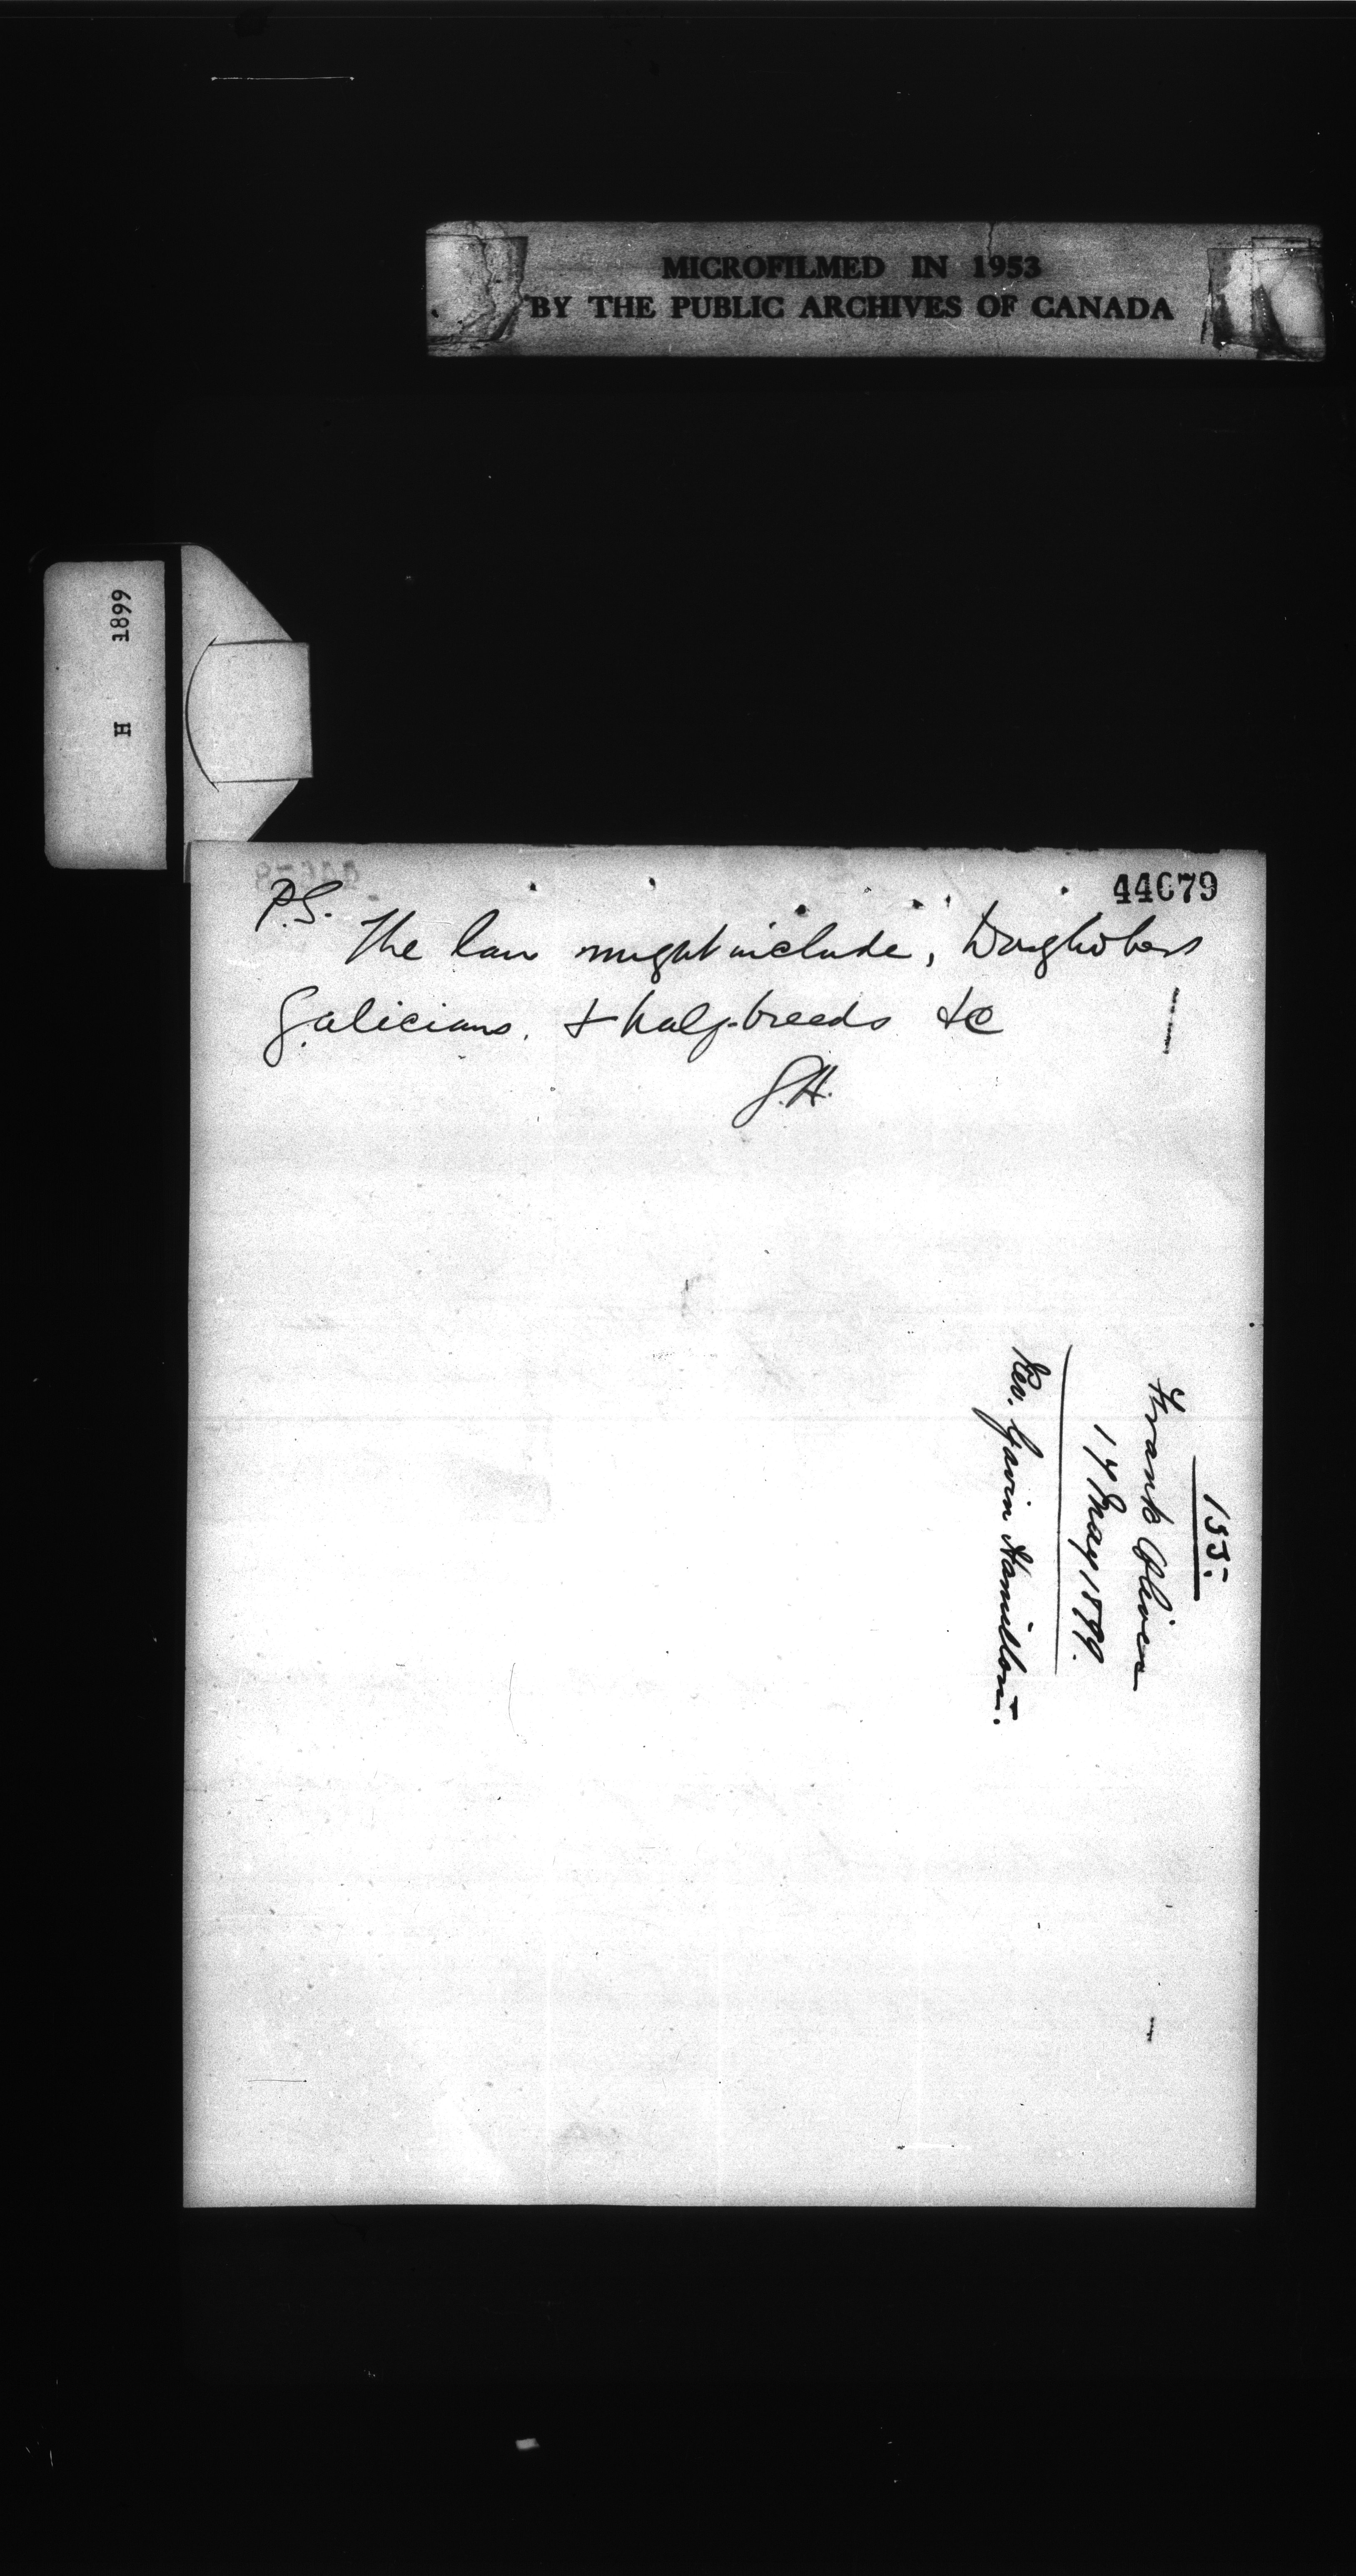 MICROFILMED IN 1953
BY THE PUBLIC ARCHIVES OF CANADA
H 1899
44679
P.S.
The law might include, Doughobers
Galicians, & half-breeds &c
G.H.
155.
Frank Oliver
17 May 1899.
Rev. Gavin Hamilton.